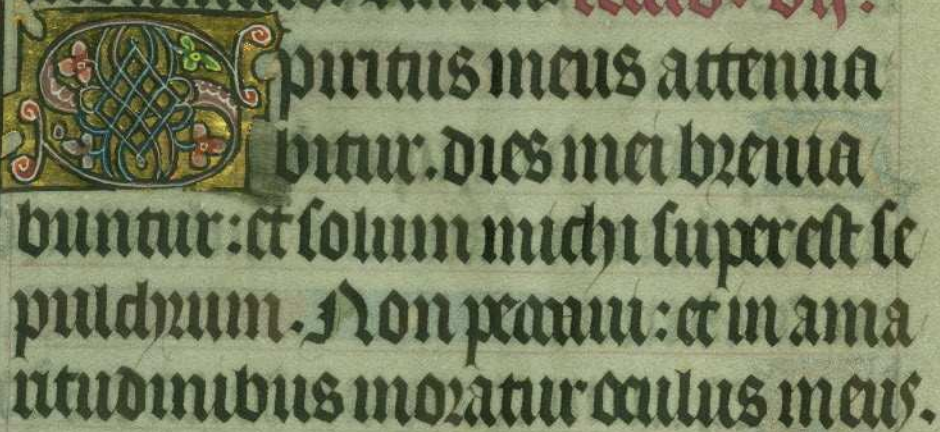 lectio. vij.
Spiritus meus attenua
bitur. dies mei breuia
buntur: et solum michi superest se
pulchrum. Non peccaui: et in ama
ritudinibus moratur oculus meus.